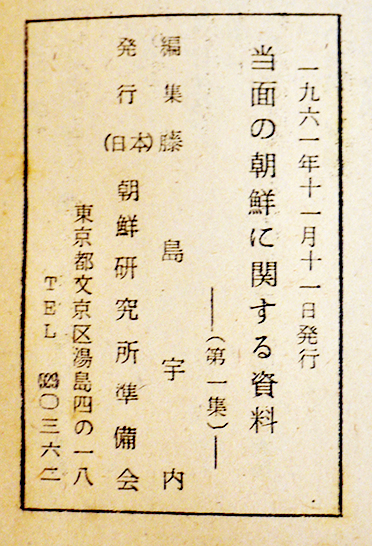 一九六一年十一月十一日発行
当面の朝鮮に関する資料
――(第一集)――
編集 藤島宇内
発行 (日本)朝鮮研究所準備会
東京都文京区湯島四の一八
TEL 〇三六二